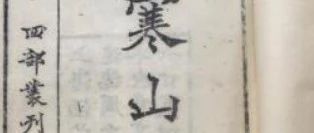 寒山
四部叢刊